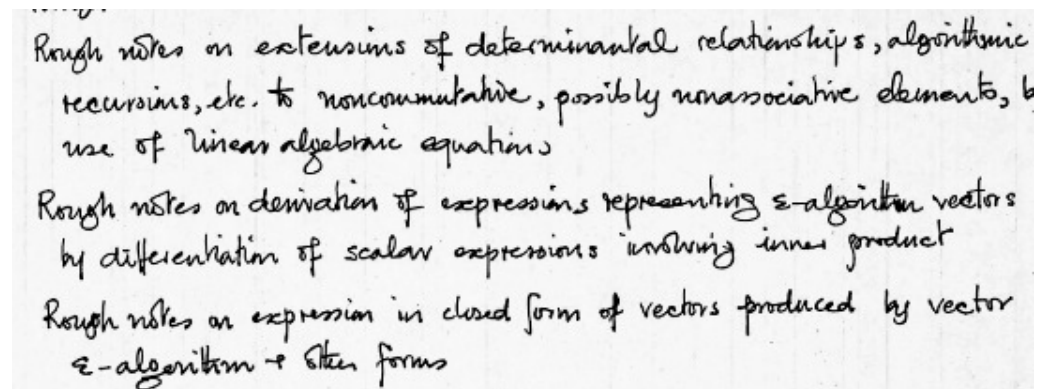 Rough notes on extensions of determinantal relationships, algorithmic
recursions, etc. to noncommutative, possibly nonassociative elements, b
use of linear algebraic equations
Rough notes on derivation of expressions representing ε-algorithm vectors
by differentiation of scalar expressions involving inner product
Rough notes on expression in closed form of vectors produced by vector
ε-algorithm + other forms